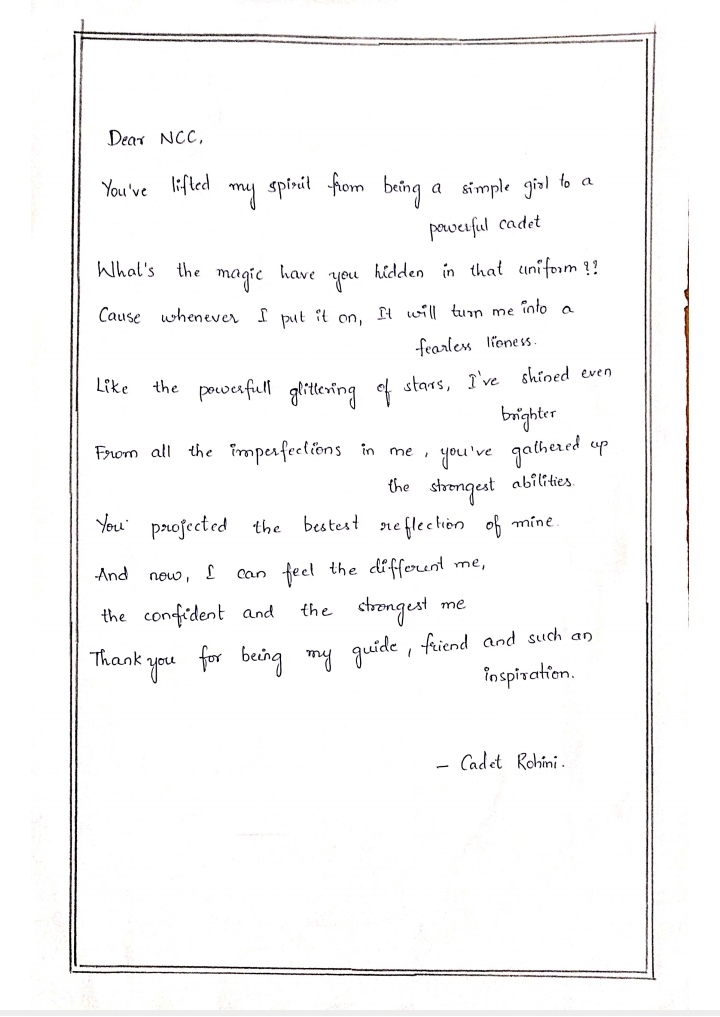 Dear NCC,
You've lifted my spirit from being a simple girl to a
powerful cadet
What's the magic have you hidden in that uniform ??
Cause whenever I put it on, It will turn me into a
fearless lioness.
Like the powerfull glittering of stars, I've shined even
brighter
From all the imperfections in me, you've gathered up
the strongest abilities.
You projected the bestest reflection of mine.
And now, I can feel the different me,
the confident and the strongest me
Thank you for being my guide, friend and such an
inspiration.
- Cadet Rohini.